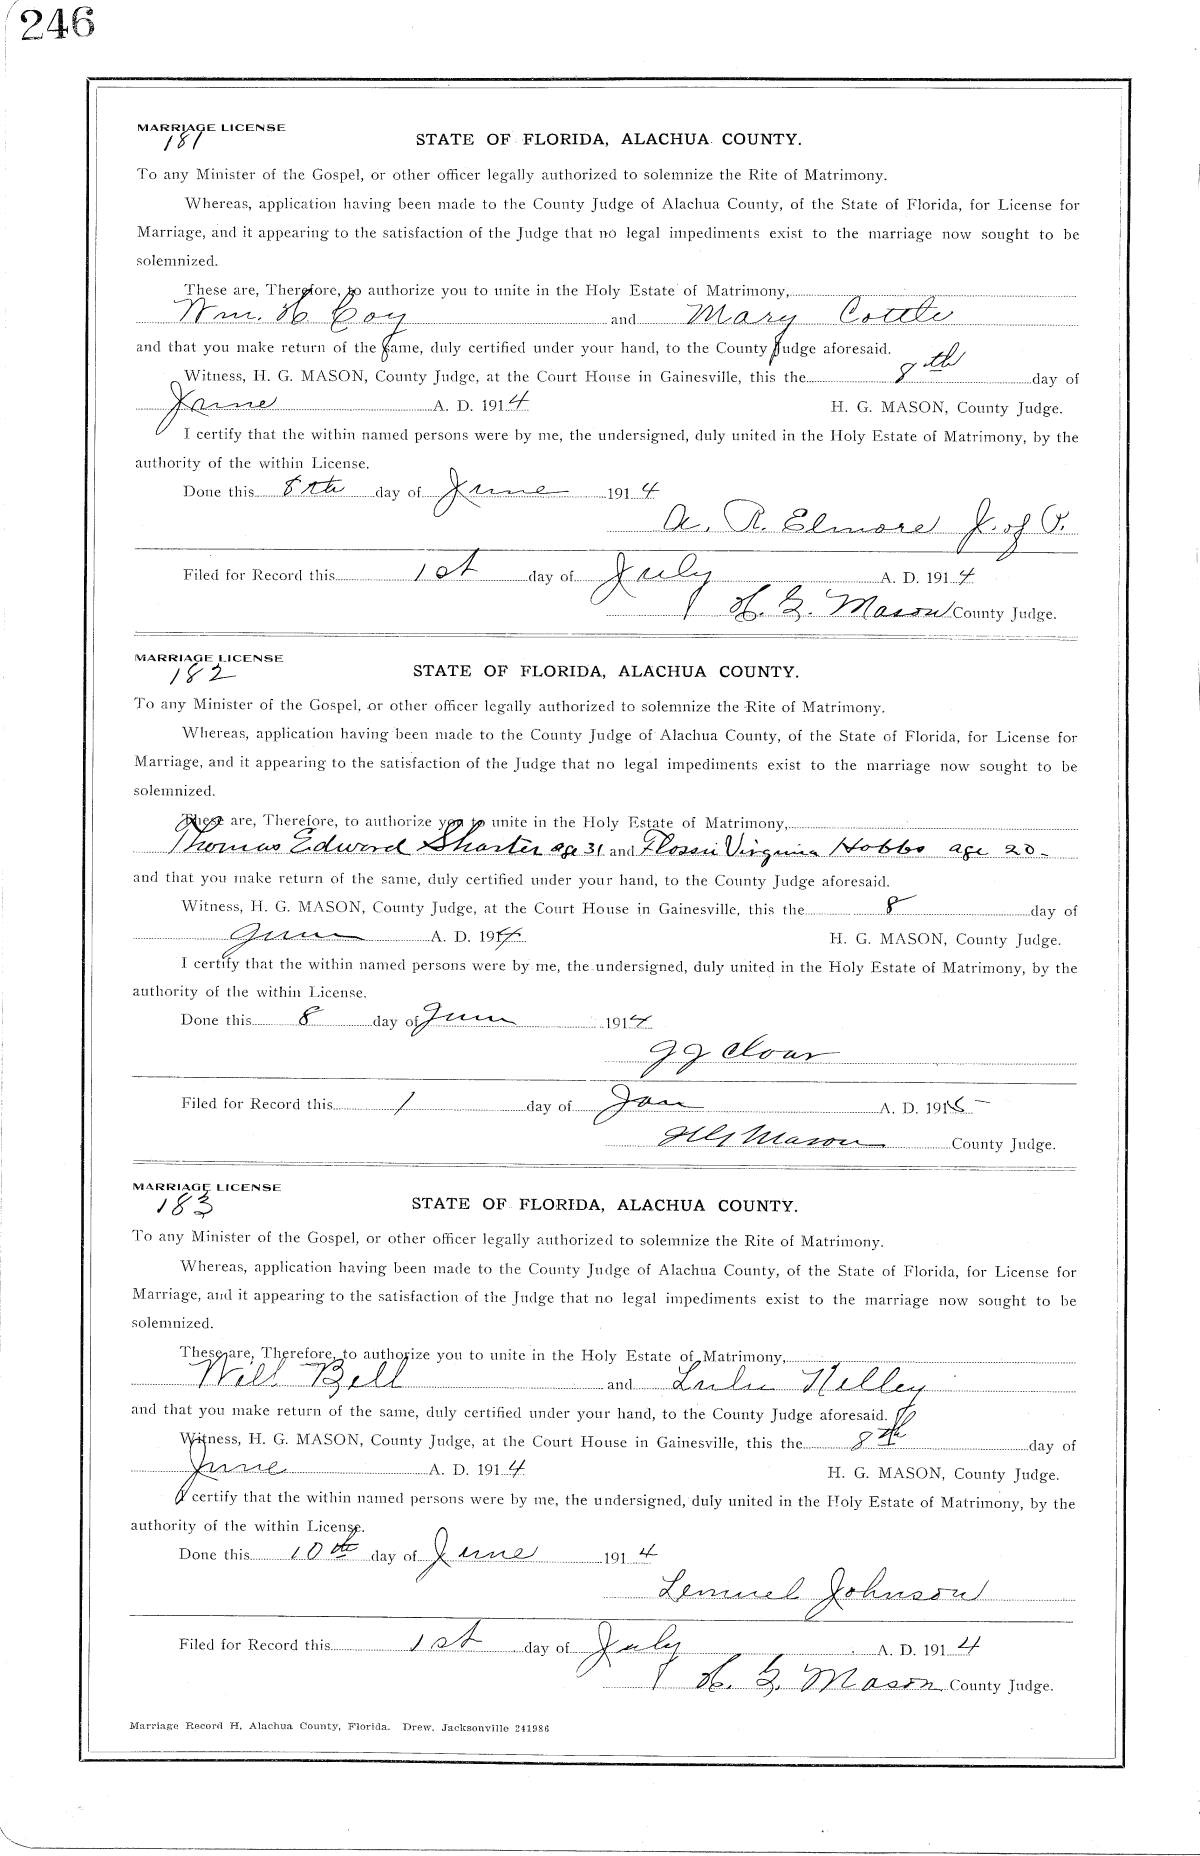 246
MARRIAGE LICENSE
181
STATE OF FLORIDA, ALACHUA COUNTY.
To any Minister of the Gospel, or other officer legally authorized to solemnize the Rite of Matrimony.
Whereas, application having been made to the County Judge of Alachua County, of the State of Florida, for License for
Marriage, and it appearing to the satisfaction of the Judge that no legal impediments exist to the marriage now sought to be
solemnized.
These are, Therefore, to authorize you to unite in the Holy Estate of Matrimony,
Wm. H Coy and Mary Cottle
and that you make return of the same, duly certified under your hand, to the County Judge aforesaid.
Witness, H. G. MASON, County Judge, at the Court House in Gainesville, this the 8th day of
June A. D. 1914 H. G. MASON, County Judge.
I certify that the within named persons were by me, the undersigned, duly united in the Holy Estate of Matrimony, by the
authority of the within License.
Done this 8th day of June 1914
A. R. Elmore J. of P.
Filed for Record this 1st day of July A. D. 1914
H. G. Mason County Judge.
MARRIAGE LICENSE
182
STATE OF FLORIDA, ALACHUA COUNTY.
To any Minister of the Gospel, or other officer legally authorized to solemnize the Rite of Matrimony.
Whereas, application having been made to the County Judge of Alachua County, of the State of Florida, for License for
Marriage, and it appearing to the satisfaction of the Judge that no legal impediments exist to the marriage now sought to be
solemnized.
These are, Therefore, to authorize you to unite in the Holy Estate of Matrimony,
Thomas Edward Sharter age 31 and Flossie Virginia Hobbs age 20-
and that you make return of the same, duly certified under your hand, to the County Judge aforesaid.
Witness, H. G. MASON, County Judge, at the Court House in Gainesville, this the 8 day of
June A. D. 1914 H. G. MASON, County Judge.
I certify that the within named persons were by me, the undersigned, duly united in the Holy Estate of Matrimony, by the
authority of the within License.
Done this 8 day of June 1914
Filed for Record this 1 day of Jan A. D. 1915
HG Mason County Judge.
MARRIAGE LICENSE
183
STATE OF FLORIDA, ALACHUA COUNTY.
To any Minister of the Gospel, or other officer legally authorized to solemnize the Rite of Matrimony.
Whereas, application having been made to the County Judge of Alachua County, of the State of Florida, for License for
Marriage, and it appearing to the satisfaction of the Judge that no legal impediments exist to the marriage now sought to be
solemnized.
These are, Therefore, to authorize you to unite in the Holy Estate of Matrimony,
Will Bell and Lulu Kelley
and that you make return of the same, duly certified under your hand, to the County Judge aforesaid.
Witness, H. G. MASON, County Judge, at the Court House in Gainesville, this the 8th day of
June A. D. 1914 H. G. MASON, County Judge.
I certify that the within named persons were by me, the undersigned, duly united in the Holy Estate of Matrimony, by the
authority of the within License.
Done this 10th day of June 1914
Lemuel Johnson
Filed for Record this 1st day of July A. D. 1914
H. G. Mason County Judge.
Marriage Record H, Alachua County, Florida. Drew, Jacksonville 241986